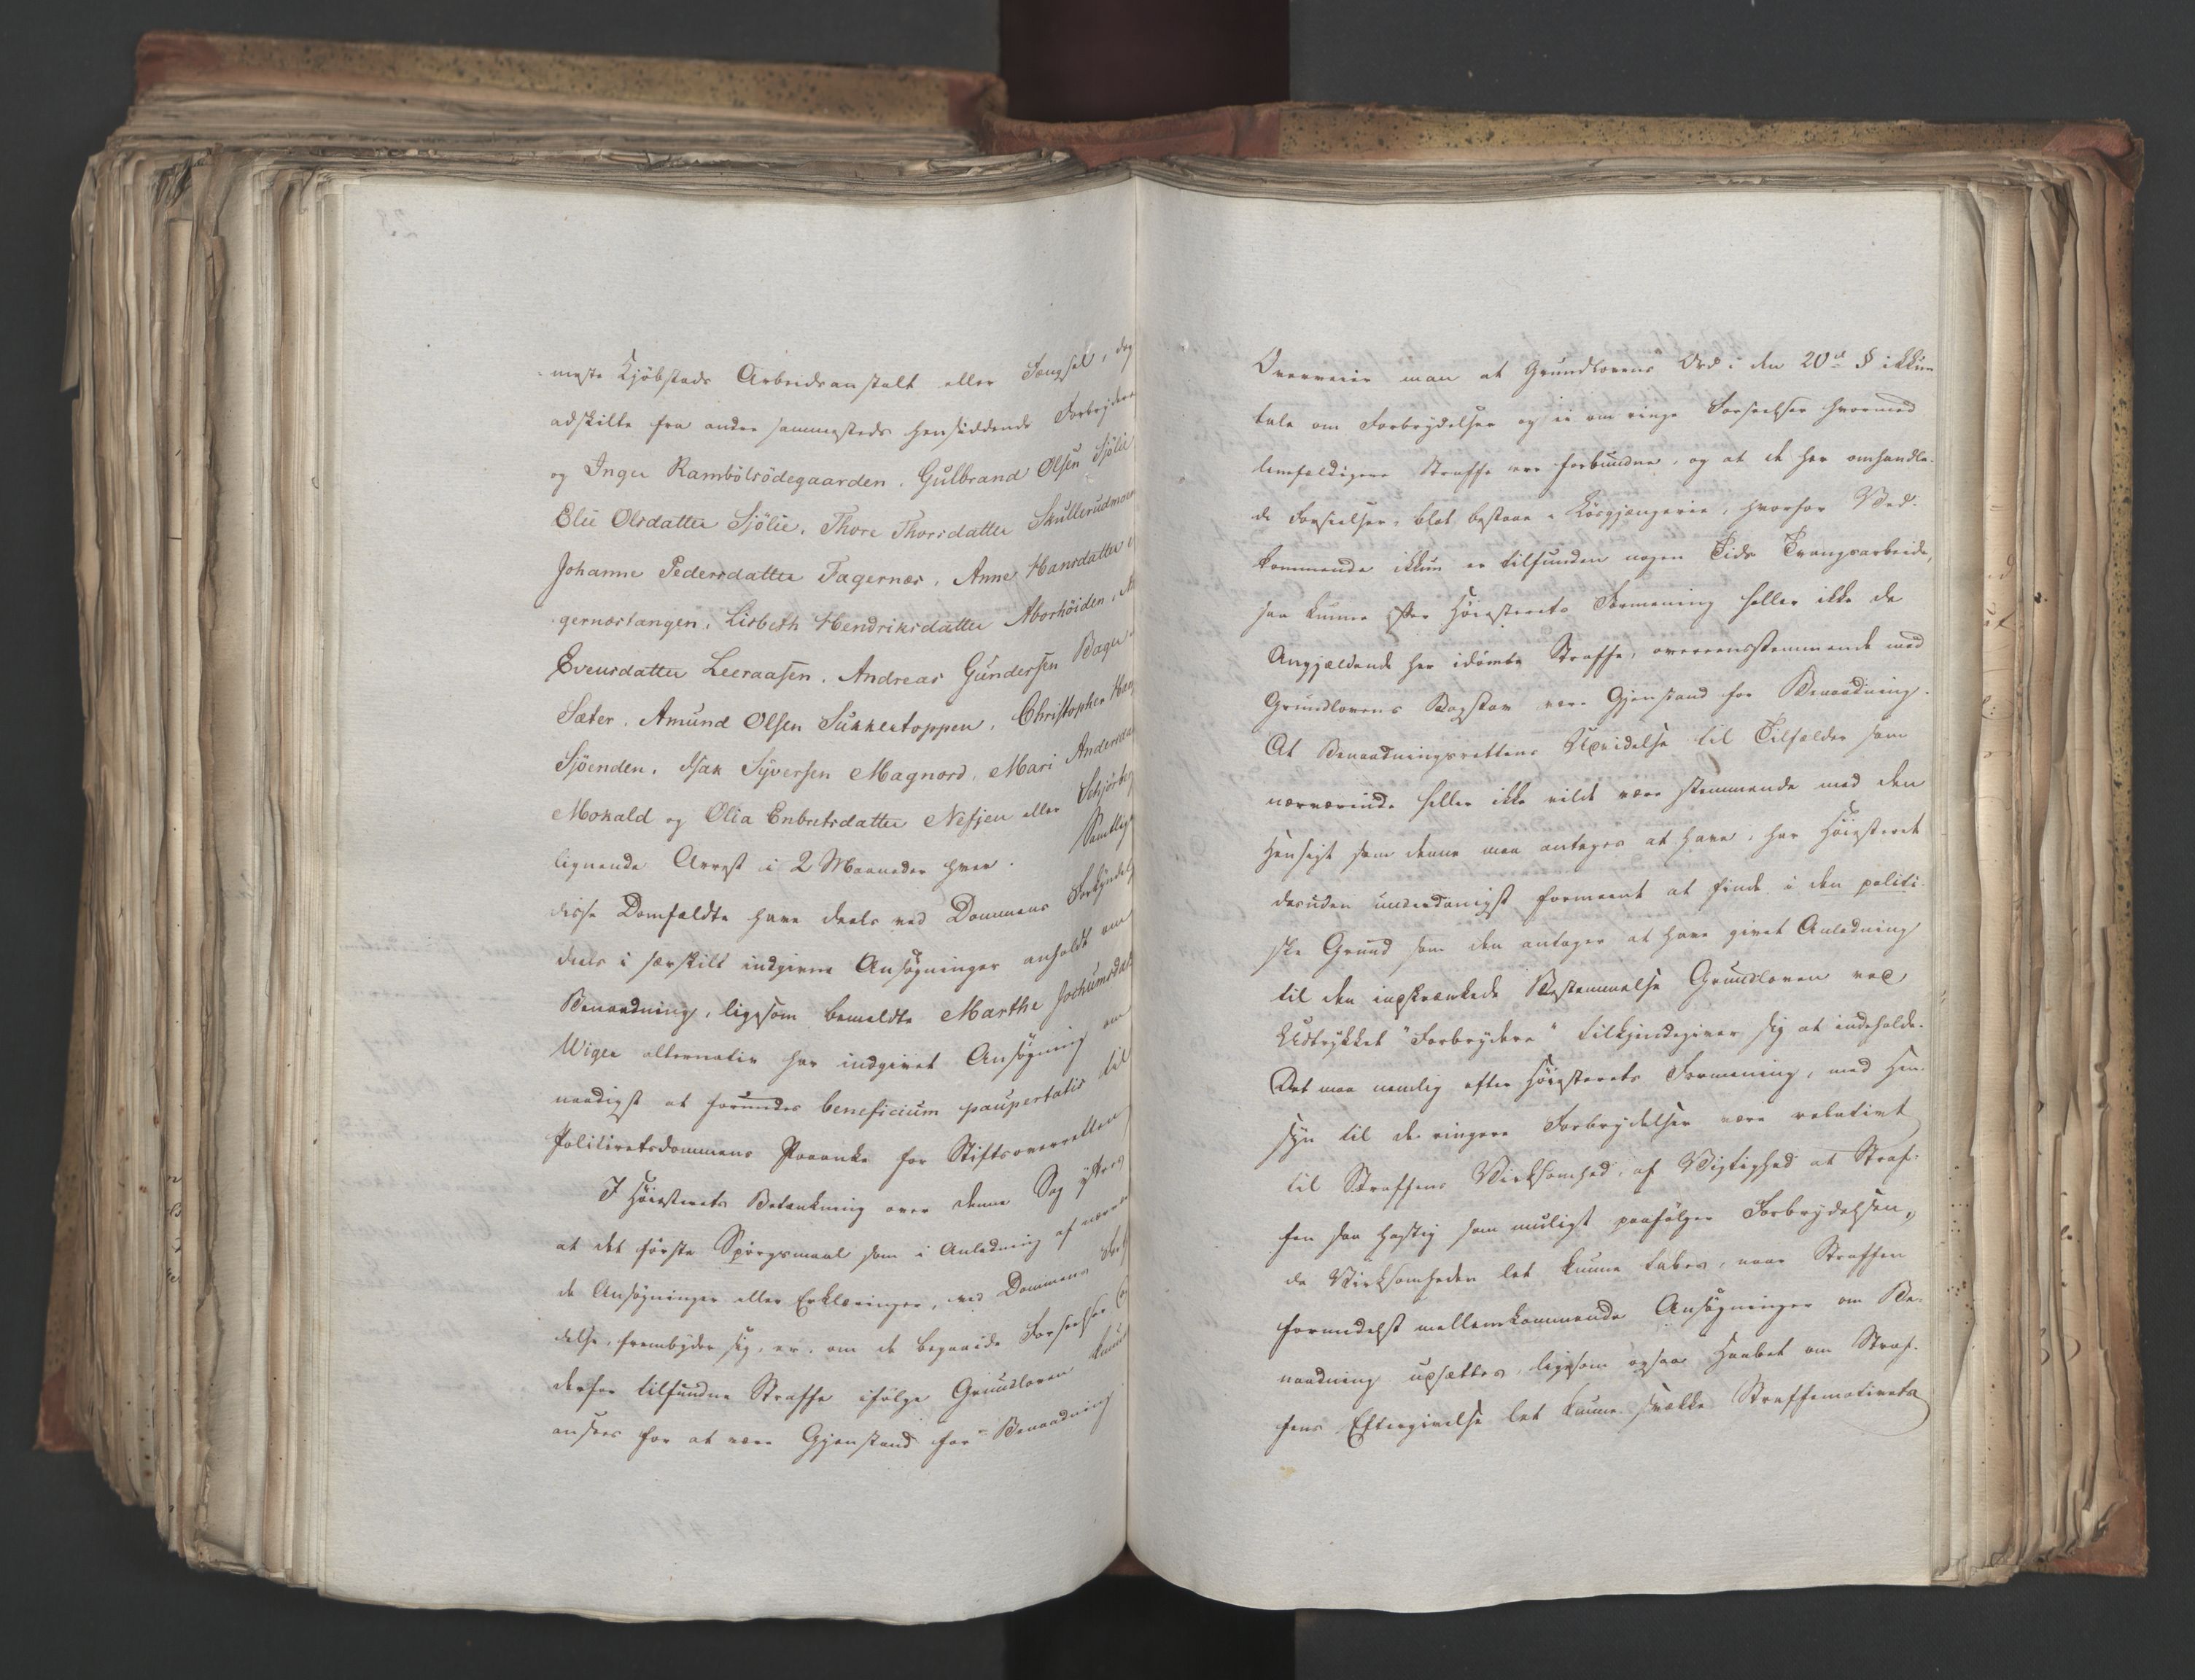 meste Kjöbstads Arbeidsanstalt eller Fængsel, dog
adskilte fra andre sammesteds hensiddende Forbrydere
og Inger Rambölsödegaarden, Gulbrand Olsen Sjölie
Elie Olsdatter Sjölie, Thore Thorsdatter Skullerudmoen
Johanne Pedersdatter Fagernæs, Anne Hansdatter
gernæstangen, Lisbeth Hendriksdatter Aborhöiden,
Evensdatter Leeraasen, Andreas Gundersen Bager
Sæter, Amund Olsen Sukkertoppen, Christopher Han
Sjöenden, Isak Syversen Magnord, Mari Andersda
Mokald og Olia Enbretsdatter Nefsjen eller Schjörb
lignende Arrest i 2 Maaneder hver. Samtlige
disse Domfældte have deels ved Dommens Forkyndel
deels i særskilt indgivne Ansøgninger anholdt om
Benaadning, ligesom bemeldte Marthe Jochumsdat
Wiger alternativ har indgivet Ansøgning om
naadigst at forundes beneficium paupertatis til
Politiretsdommens Paaanke for Stiftsoverretten
I Høiesterets Betænkning over denne Sag yttres
at det første Spørgsmaal som i Anledning af nærvæ
de Ansøgninger eller Erklæringer, ved Dommens Fork
delse, frembyder sig, er, om de begaaede Forseelser
derfor tilfundne Straffe ifølge Grundloven kunne
ansees for at være Gjenstand for Benaadning
Overveier man at Grundlovens Ord i den 20de § ikkun
tale om Forbrydelser og ei om ringe Forseelser hvormed
lemfældigere Straffe ere forbundne, og at de her omhandle-
de Forseelser, blot bestaae i Løsgjængerie, hvorfor Ved-
kommende ikkun er tilfunden nogen Tids Tvangsarbeide,
saa kunne efter Høiesterets Formening heller ikke de
Angjældende her idømte Straffe, overeensstemmende med
Grundlovens Bogstav være Gjenstand for Benaadning.
At Benaadningsrettens Udvidelse til Tilfælder som
nærværende heller ikke vilde være stemmende med den
Hensigt som denne maa antages at have, har Høiesteret
desuden underdanigst formeent at finde i den politi-
ske Grund som den antager at have givet Anledning
til den indskrænkede Bestemmelse Grundloven ved
Udtrykket "Forbrydere" tilkjendegiver sig at indeholde.
Det maa nemlig efter Høiesterets Formening, med Hen-
syn til de ringere Forbrydelser være relativt
til Straffens Virksomhed, af Vigtighed at Straf-
fen saa hastig som muligt paafølger Forbrydelsen,
da Virksomheden let kunne tabes, naar Straffen
formedelst mellemkommende Ansøgninger om Be-
naadning udsættes, ligesom ogsaa Haabet om Straf-
fens Eftergivelse let kunne svække Straffemotivets